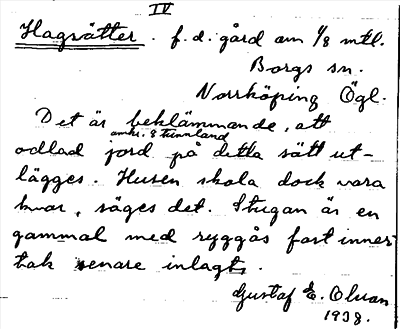 IV
Hagsätter. f. d. gård om 1/8 mtl.
Borgs sn.
Norrköping Ögl.
Det är beklämmande, att
omkr. 8 tunnland
odlad jord på detta sätt ut-
lägges. Husen skola dock vara
kvar, säges det. Stugan är en
gammal med ryggås fast inner-
tak senare inlagts.
Gustaf E. Olsson
1938.